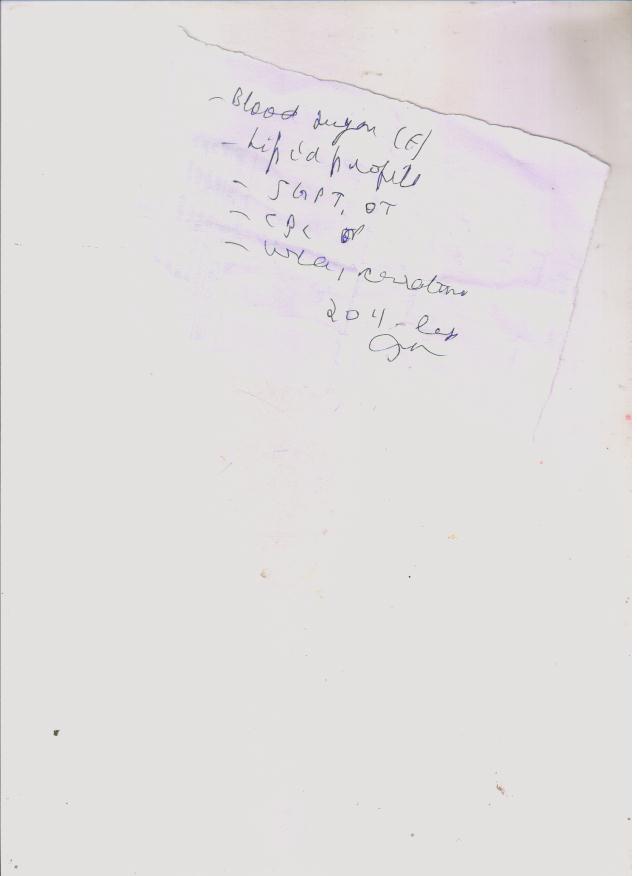 - Blood sugar (F)
- Lipid profile
- SGPT, OT
- CBC
- Urea, creatinine
204 - Lab